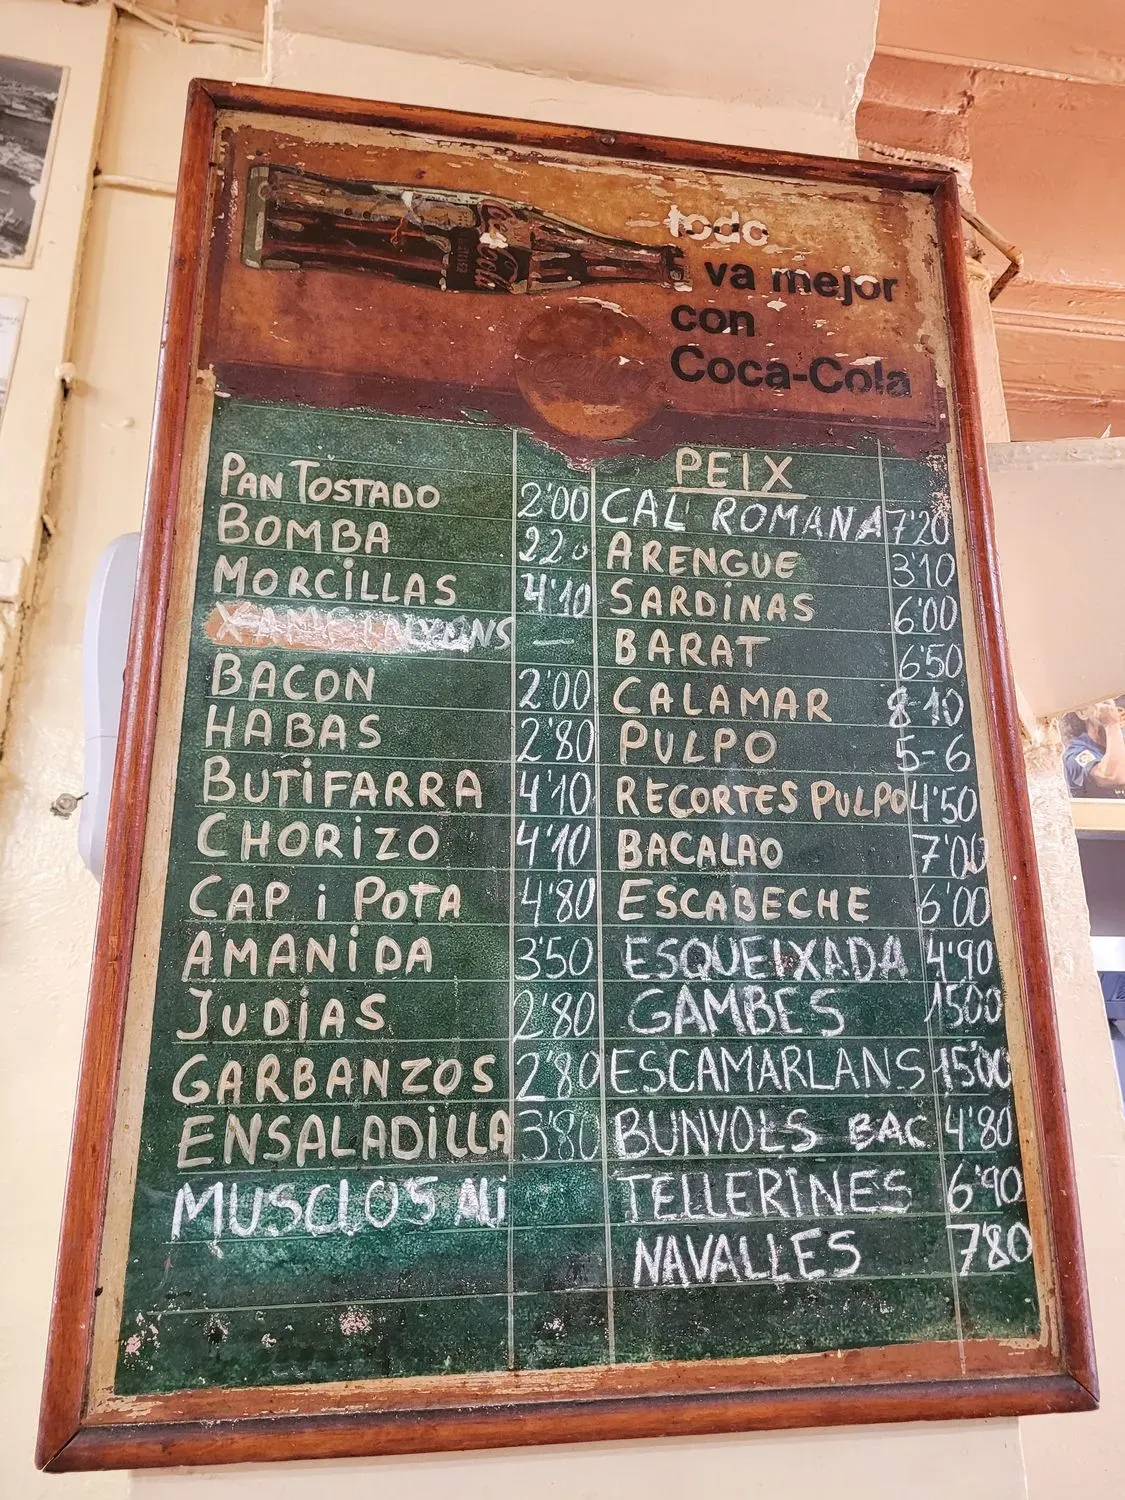 Coca-Cola
todo
va mejor
con
Coca-Cola
PAN TOSTADO 2'00
BOMBA 220
MORCILLAS 4'10
—
BACON 2'00
HABAS 2'80
BUTIFARRA 4'10
CHORIZO 4'10
CAP i POTA 4'80
AMANIDA 3'50
JUDIAS 2'80
GARBANZOS 2'80
ENSALADILLA 3'80
MUSCLOS ALi
PEIX
CAL' ROMANA 7'20
ARENGUE 3'10
SARDINAS 6'00
BARAT 6'50
CALAMAR 8-10
PULPO 5-6
RECORTES PULPO 4'50
BACALAO 7'00
ESCABECHE 6'00
ESQUEIXADA 4'90
GAMBES 1500
ESCAMARLANS 15'00
BUNYOLS BAC 4'80
TELLERINES 6'90
NAVALLES 7'80